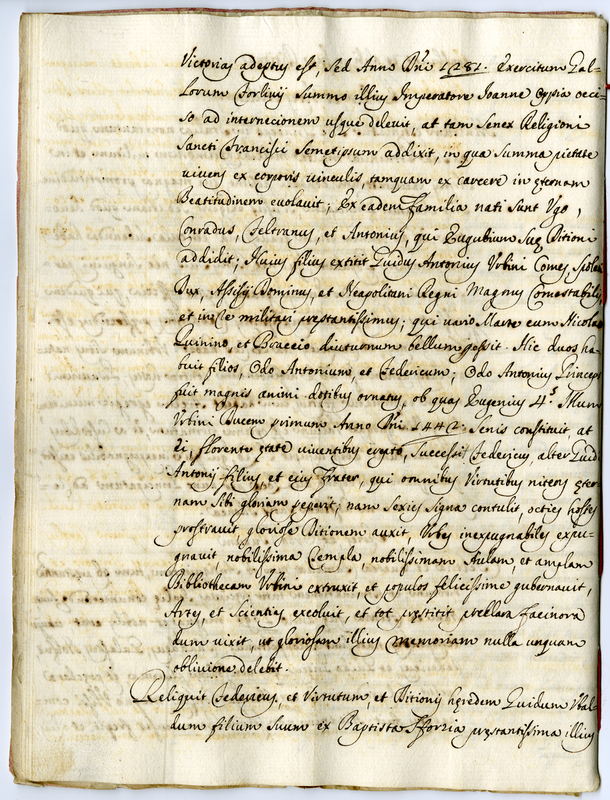 Victorias adeptus est, sed Anno Dñi 1281. exercitum Gal=
lorum Forlivij summo illius Imperatore Joanne Appia occi=
so ad internecionem usque delevit, at tam senex Religioni
Sancti Francisci semetipsum addixit, in qua summa pietate
vivens ex corporis vinculis tamquam ex carcere in ęternam
Beatitudinem evolavit; Ex eadem Familia nati sunt Vgo,
Conradus, Feltranus, et Antonius, qui Eugubium suę Ditioni
addidit; Huius filius extitit Guidus Antonius Vrbini Comes,
Dux, Assisij Dominus, et Neapolitani Regni Magnus Comestabilis
et in re militari pręstantissimus; qui vario Marte cum Nicolao
Piinino, et Braccio diuturnum bellum gessit. Hic duos ha=
buit filios, Odo Antonium, et Federicum; Odo Antonius Princeps
fuit magnis animi dotibus ornatus, ob quas Eugenius 4.s Illum
Vrbini Ducem primum Anno Dñi 1442. Senis constituit, at
Ei, florente ętate viventibus erepto, successit Federicus, alter Guid
Antonij filius, et eius Frater, qui omnibus Virtutibus nitens ęter=
nam sibi gloriam peperit; nam sexies signa contulit, octies hostes
prostravit, gloriose Ditionem auxit, Vrbes inexpugnabiles expu=
gnavit, nobilissima Templa, nobilissimam Aulam, et amplam
Bibliothecam Vrbini extruxit, et populos felicissime gubernavit,
Artes, et Scientias excoluit, et tot pręstitit preclara facinora
dum vixit, ut gloriosam illius memoriam nulla unquam
oblivione delebit.
Reliquit Federicus, et Virtutum, et Ditionis hęredem Guidum Vbal=
dum filium suum ex Baptista Sfortia pręstantissima illius